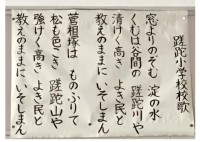 蹉跎小学校校歌
窓よりのぞむ 淀の水
くむは谷間の 蹉跎川や
清けく高き よき民と
教えのままに いそしまん
菅相塚は ものふりて
松も色こき 蹉跎山や
強けく高き よき民と
教えのままに いそしまん